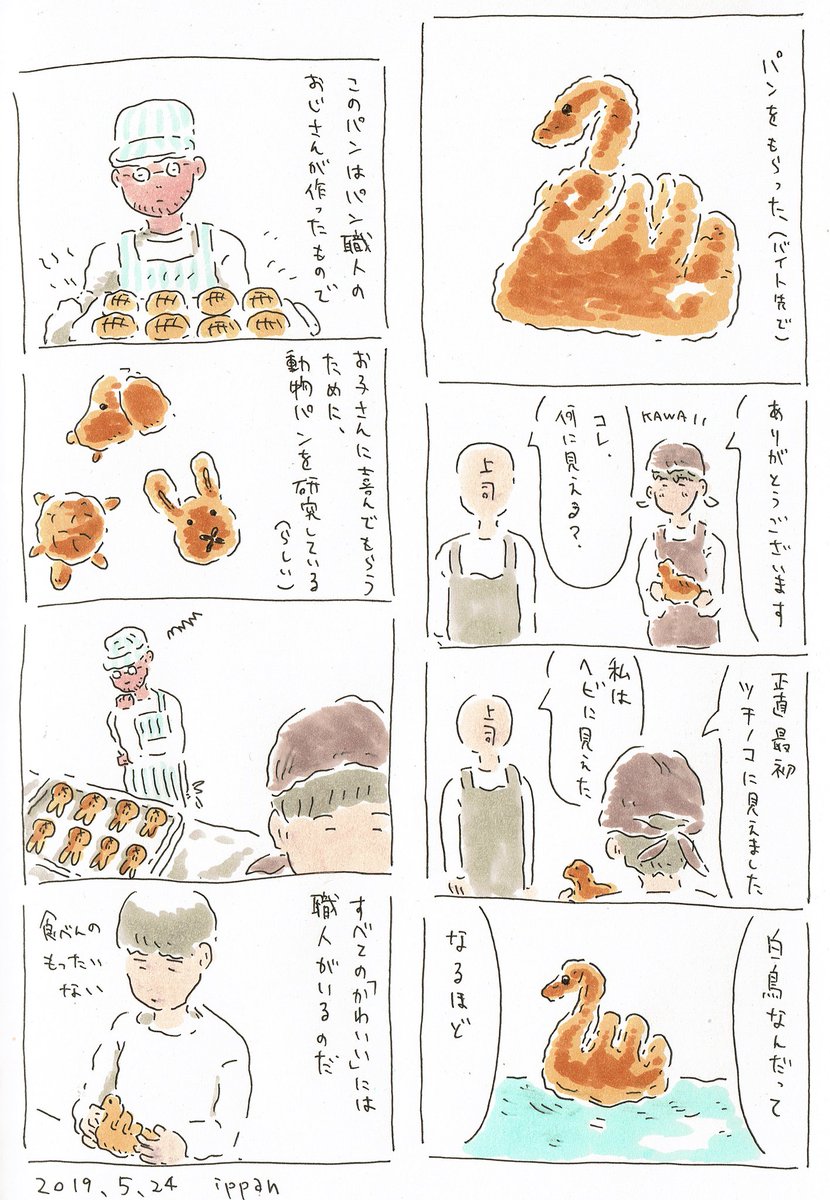 パンをもらった、(バイト先で)
ありがとうございます
KAWAII
コレ、
何に見える？
上司
正直最初
ツチノコに見えました
私は
ヘビに見えた
上司
白鳥なんだって
なるほど
このパンはパン職人の
おじさんが作ったもので
お子さんに喜んでもらう
ために、
動物パンを研究している
(らしい)
すべての「かわいい」には
職人がいるのだ
食べんの
もったい
ない
2019.5.24 ippan